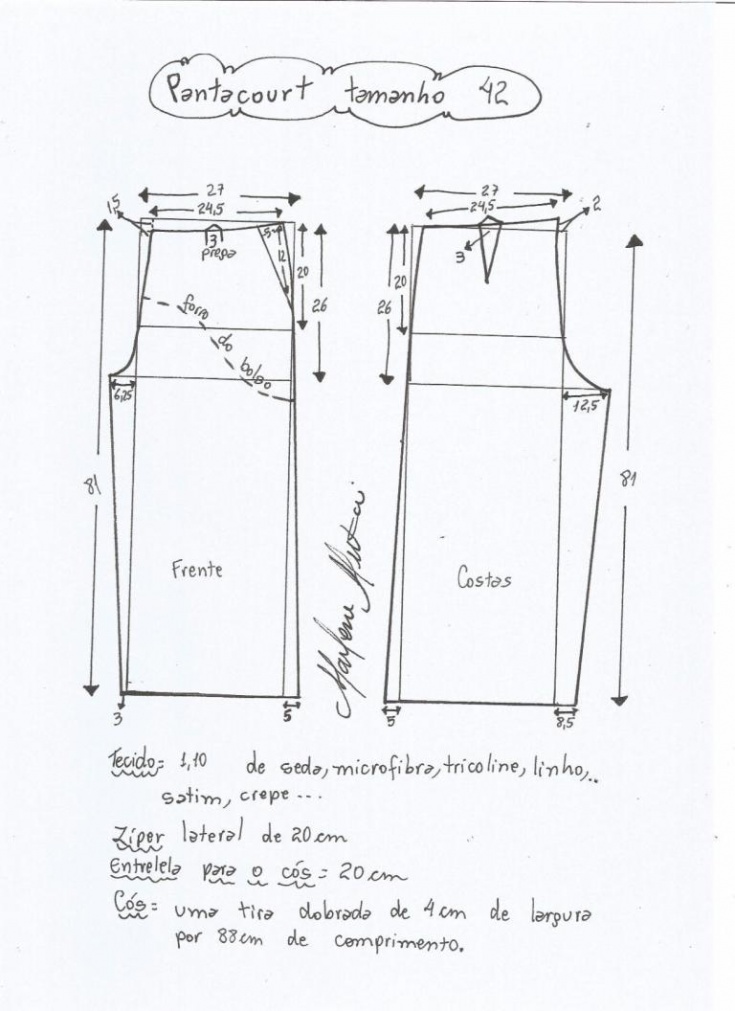 Pantacourt tamanho 42
27
24,5
1,5
3
prega
5
12
20
26
forro
do
bolso
6,25
81
Frente
3
5
27
24,5
2
3
20
26
12,5
81
Costas
5
8,5
Marlene Mukai
Tecido= 1,10 de seda, microfibra, tricoline, linho,..
satim, crepe ...
Zíper lateral de 20 cm
Entrelela para o cós = 20 cm
Cós= uma tira dobrada de 4 cm de largura
por 88 cm de comprimento.